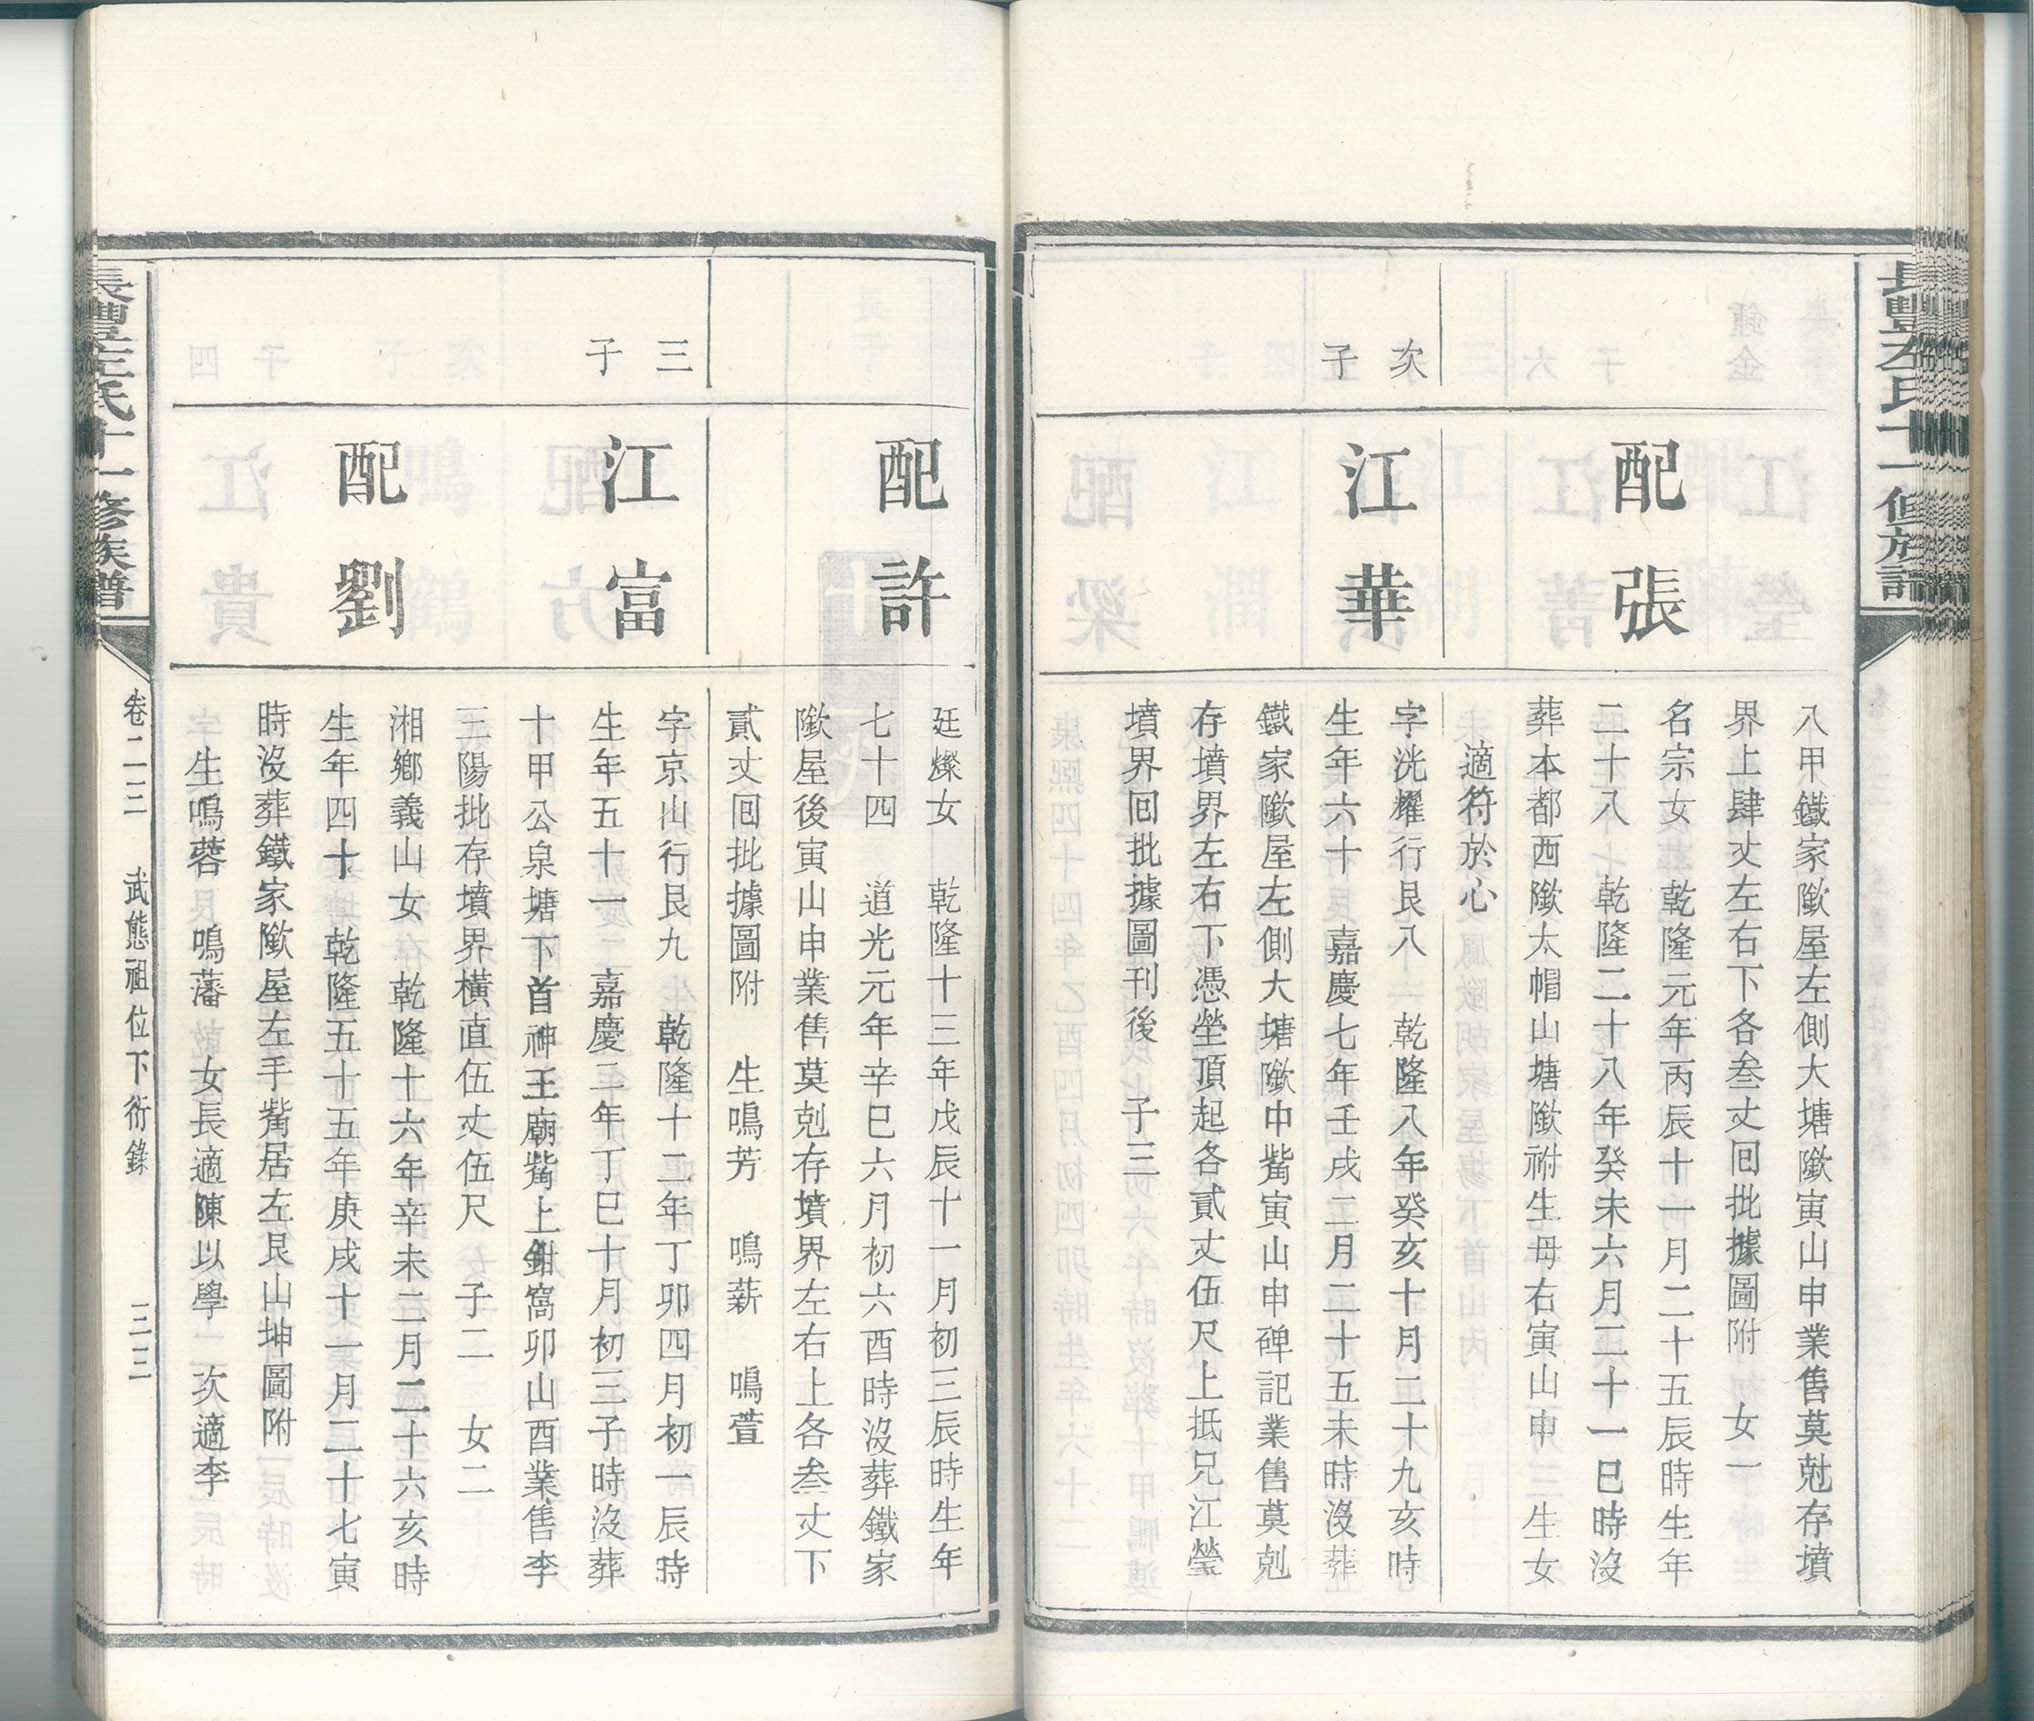 長豐左氏十一修族譜
八甲鐵家歘屋左側大塘歘寅山申業售莫尅存墳
界上肆丈左右下各叁丈回批據圖附 女一
配張
名宗女 乾隆元年丙辰十一月二十五辰時生年
二十八 乾隆二十八年癸未六月二十一巳時沒
葬本都西歘太帽山塘歘祔生母右寅山申 生女
適符於心
次子
江華
字洸耀行艮八 乾隆八年癸亥十月二十九亥時
生年六十 嘉慶七年壬戌二月二十五未時沒葬
鐵家歘屋左側大塘歘中觜寅山申碑記業售莫剋
存墳界左右下憑塋頂起各貳丈伍尺上抵兄江瑩
墳界回批據圖刊後 子三
配許
廷燦女 乾隆十三年戊辰十一月初三辰時生年
七十四 道光元年辛巳六月初六酉時沒葬鐵家
歘屋後寅山申業售莫剋存墳界左右上各叁丈下
貳丈回批據圖附 生鳴芳 鳴薪 鳴萱
三子
江富
字京山行艮九 乾隆十二年丁卯四月初一辰時
生年五十一 嘉慶二年丁巳十月初三子時沒葬
十甲公泉塘下首神王廟觜上鉗窩卯山酉業售李
三陽批存墳界橫直伍丈伍尺 子二 女二
配劉
湘鄉義山女 乾隆十六年辛未二月二十六亥時
生年四十 乾隆五十五年庚戌十一月二十七寅
時沒葬鐵家歘屋左手觜居左艮山坤圖附
生鳴蓉 鳴藩 女長適陳以學 次適李
長豐左氏十一修族譜
卷二三 武態祖位下衍錄 三三